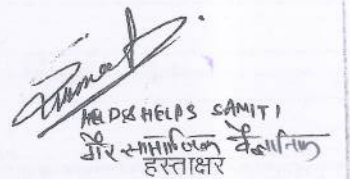 HELPS HELPS SAMITI
वीर सामाजिक वैज्ञानिक
हस्ताक्षर